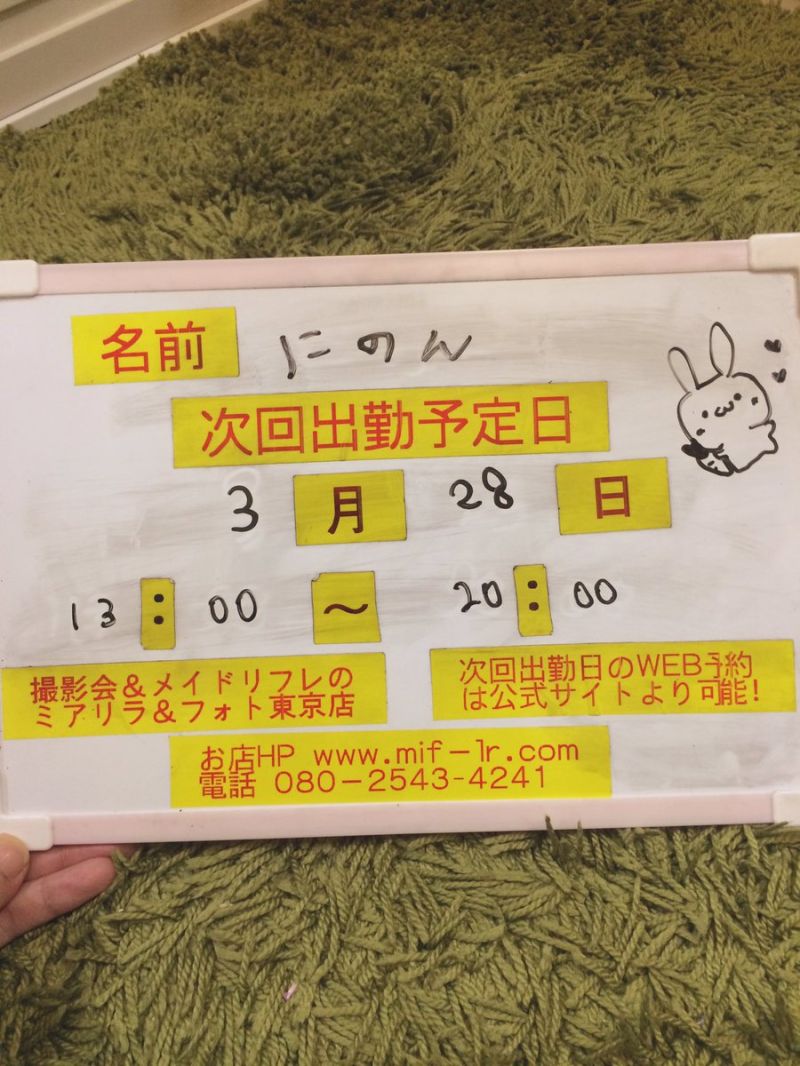 名前 にのん
次回出勤予定日
3月28日
13:00～20:00
撮影会&メイドリフレの
ミアリラ&フォト東京店
次回出勤日のWEB予約
は公式サイトより可能!
お店HP www.mif-lr.com
電話 080-2543-4241